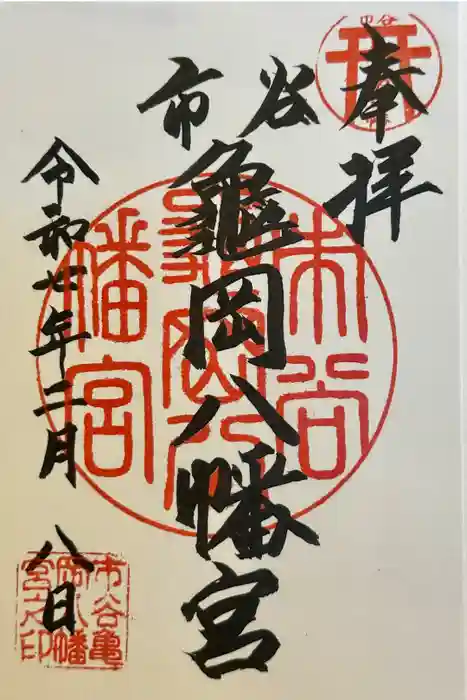 奉拝
市谷
亀岡八幡宮
令和七年二月八日
市谷
亀岡八
幡宮
市谷亀
岡八幡
宮之印